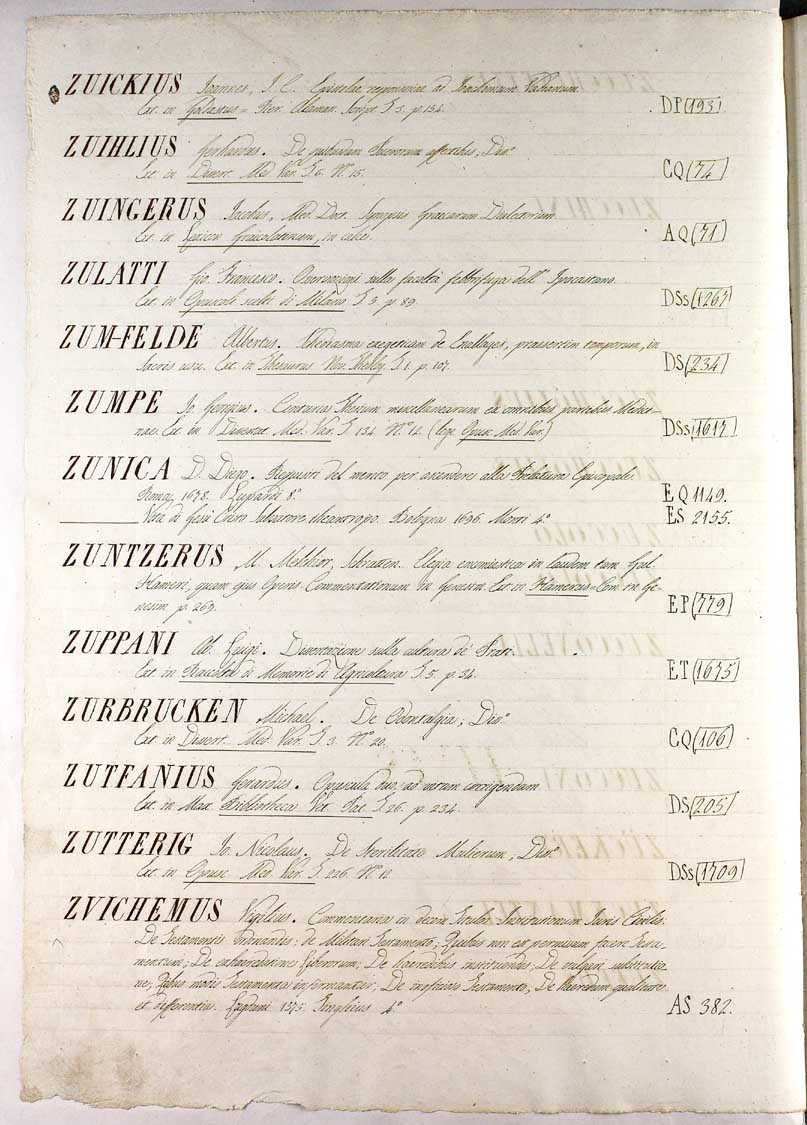 ZUICKIUS Joannes, J. C. Epistola ad Joachimum Vadianum
Ext. in Goldastus = Rer. Alaman. Script. T. 3. p. 134. DP (193)
ZUIHLIUS Gerhardus. De quibusdam affectibus, Diss.º
Ext. in Dissert. Med. Var. T. 6. Nº 15. CQ (74)
ZUINGERUS Jacobus, Med. Doct. Synopsis Graecarum Dialectorum
Ext. in Lexicon Graecolatinum, in calce. AQ (71)
ZULATTI Gio. Francesco. Osservazioni sulla facoltà febbrifuga dell' Ipocastano
Ext. in Opuscoli scelti di Milano T. 5. p. 89. DSs (1267)
ZUM-FELDE Albertus. exegeticum de Enallages, praesertim temporum, in
Sacris usu. Ext. in Thesaurus Nov. T. 1. p. 107. DS (234)
ZUMPE Jo. Georgius. Centuria thesium miscellanearum ex omnibus partibus Medici-
nae. Ext. in Dissertat. Med. Var. T. 134. Nº 12. (lege Opusc. Med. Var.) DSs (1617)
ZUNICA D. Diego. Requisiti del merito per ascendere alla Prelatura Episcopale.
Roma, 1678. Lupardi 8º EQ 1149.
Vita di Gesù Cristo Salvatore theantropo. Bologna 1696. Monti 4º ES 2155.
ZUNTZERUS M. Melchior, Elegia encomiastica in laudem tum Gul.
Hameri, quam ejus Operis Commentationum in Genesim. Ext. in Hamerus = Com. in Ge-
nesim p. 269. EP (779)
ZUPPANI Ab. Luigi. Dissertazione sulla cultura de' Prati.
Ext. in Raccolta di Memorie di Agricoltura T. 5. p. 34. ET (1675)
ZURBRUCKEN Michael. De Odontalgia, Diss.º
Ext. in Dissert. Med. Var. T. 3. Nº 20. CQ (106)
ZUTFANIUS Gerardus. Opuscula duo, ad corrigendum
Ext. in Max. Bibliotheca Vet. Pat. T. 26. p. 234. DS (205)
ZUTTERIG Jo. Nicolaus. De Sterilitate Mulierum, Diss.º
Ext. in Opusc. Med. Var. T. 226. Nº 12 DSs (1709)
ZVICHEMUS Viglius. Commentaria in decem titulos Institutionum Juris Civilis:
De Testamentis Ordinandis; de Militari Testamento; Quibus non est permissum facere testa-
mentum; De exhaeredatione liberorum; De haeredibus instituendis; De vulgari substitutio-
ne; Quibus modis Testamenta infirmantur; De inofficioso Testamento; De Haeredum qualitate
et differentia. Lugduni 1575. 4º AS 382.